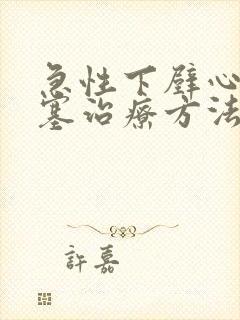 急性下壁心
塞治療方法
許嘉